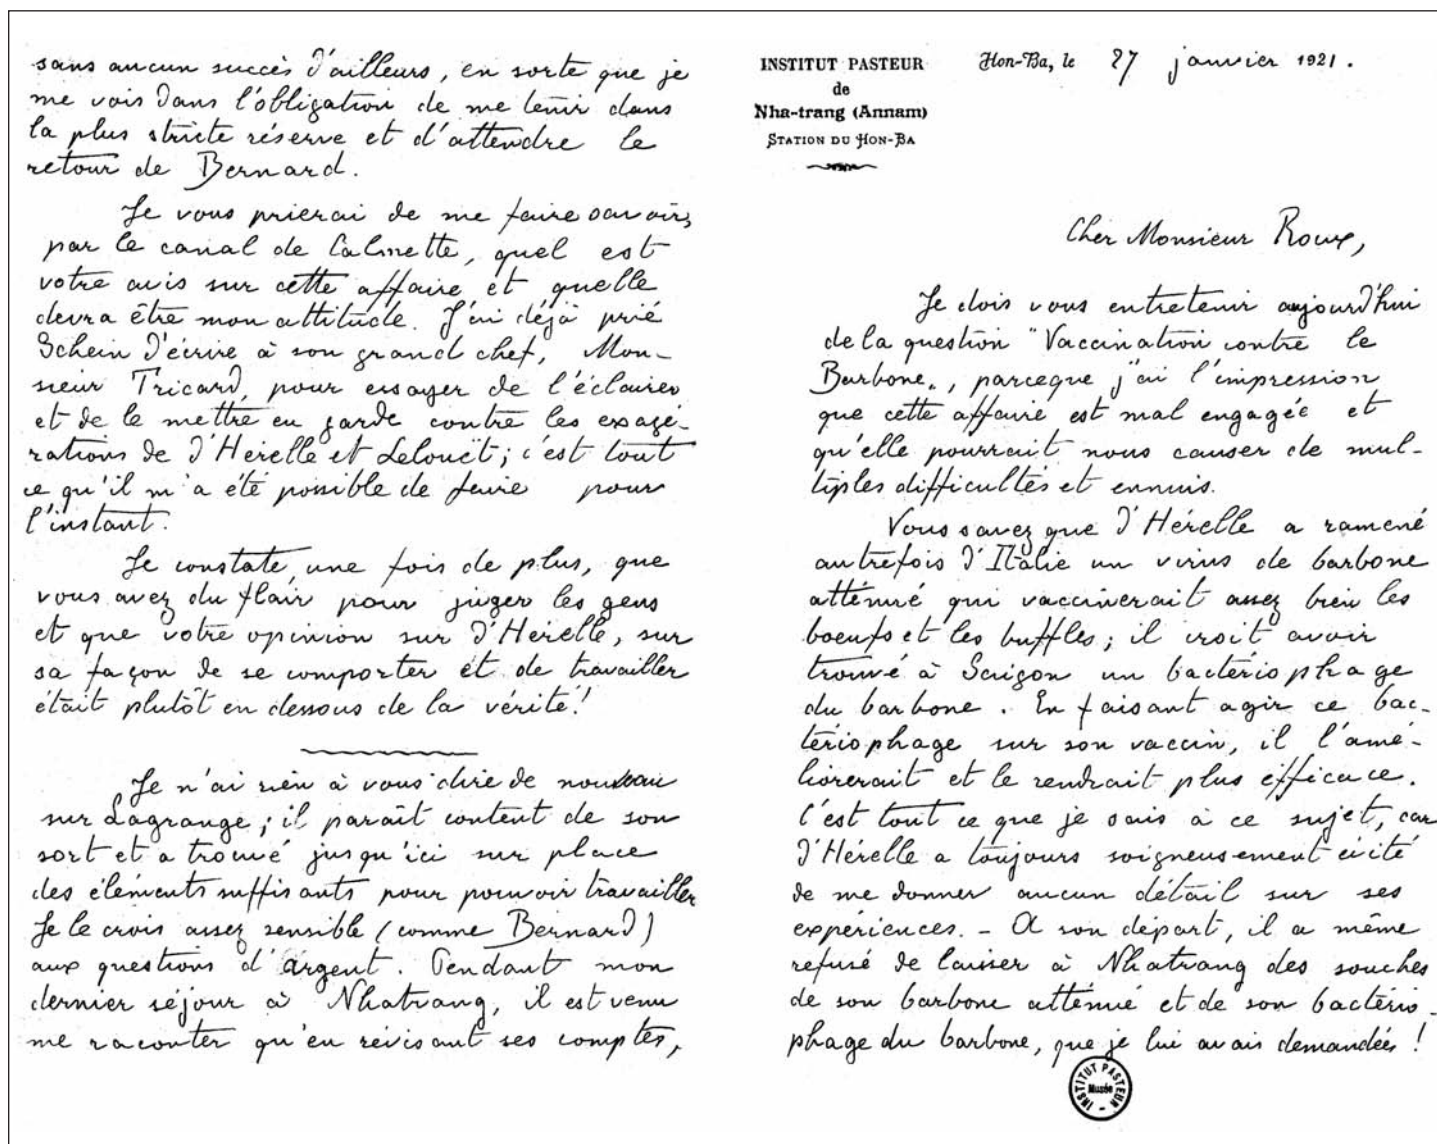 sans aucun succès d'ailleurs, en sorte que je
me vois dans l'obligation de me tenir dans
la plus stricte réserve et d'attendre le
retour de Bernard.
Je vous prierai de me faire savoir,
par le canal de Calmette, quel est
votre avis sur cette affaire et quelle
devra être mon attitude. J'ai déjà prié
Schein d'écrire à son grand chef, Mon-
sieur Tricard, pour essayer de l'éclairer
et de le mettre en garde contre les exagé-
rations de d'Hérelle et Lelouët; c'est tout
ce qu'il m'a été possible de faire pour
l'instant.
Je constate, une fois de plus, que
vous avez du flair pour juger les gens
et que votre opinion sur d'Hérelle, sur
sa façon de se comporter et de travailler
était plutôt en dessous de la vérité!
Je n'ai rien à vous dire de nouveau
sur Lagrange; il paraît content de son
sort et a trouvé jusqu'ici sur place
des éléments suffisants pour pouvoir travailler
Je le crois assez sensible (comme Bernard)
aux questions d'argent. Pendant mon
dernier séjour à Nhatrang, il est venu
me raconter qu'en révisant ses comptes,
INSTITUT PASTEUR
de
Nha-trang (Annam)
STATION DU HON-BA
Hon-Ba, le 27 janvier 1921.
Cher Monsieur Roux,
Je dois vous entretenir aujourd'hui
de la question "Vaccination contre le
Barbone", parceque j'ai l'impression
que cette affaire est mal engagée et
qu'elle pourrait nous causer de mul-
tiples difficultés et ennuis.
Vous savez que d'Hérelle a ramené
autrefois d'Italie un virus de barbone
atténué qui vaccinerait assez bien les
boeufs et les buffles; il croit avoir
trouvé à Saïgon un bactériophage
du barbone. En faisant agir ce bac-
tériophage sur son vaccin, il l'amé-
liorerait et le rendrait plus efficace.
C'est tout ce que je sais à ce sujet, car
d'Hérelle a toujours soigneusement évité
de me donner aucun détail sur ses
expériences. - A son départ, il a même
refusé de laisser à Nhatrang des souches
de son barbone atténué et de son bactério-
phage du barbone, que je lui avais demandées!
INSTITUT PASTEUR
Musée